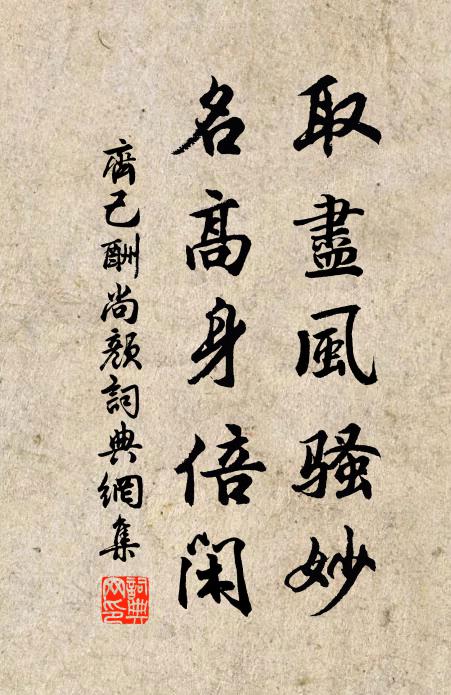 取盡風騷妙
名高身倍閑
齊己酬尚顏詞典網集
詞典網印